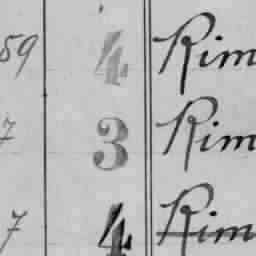 59 4 Rim
7 3 Rim
7 4 Rim